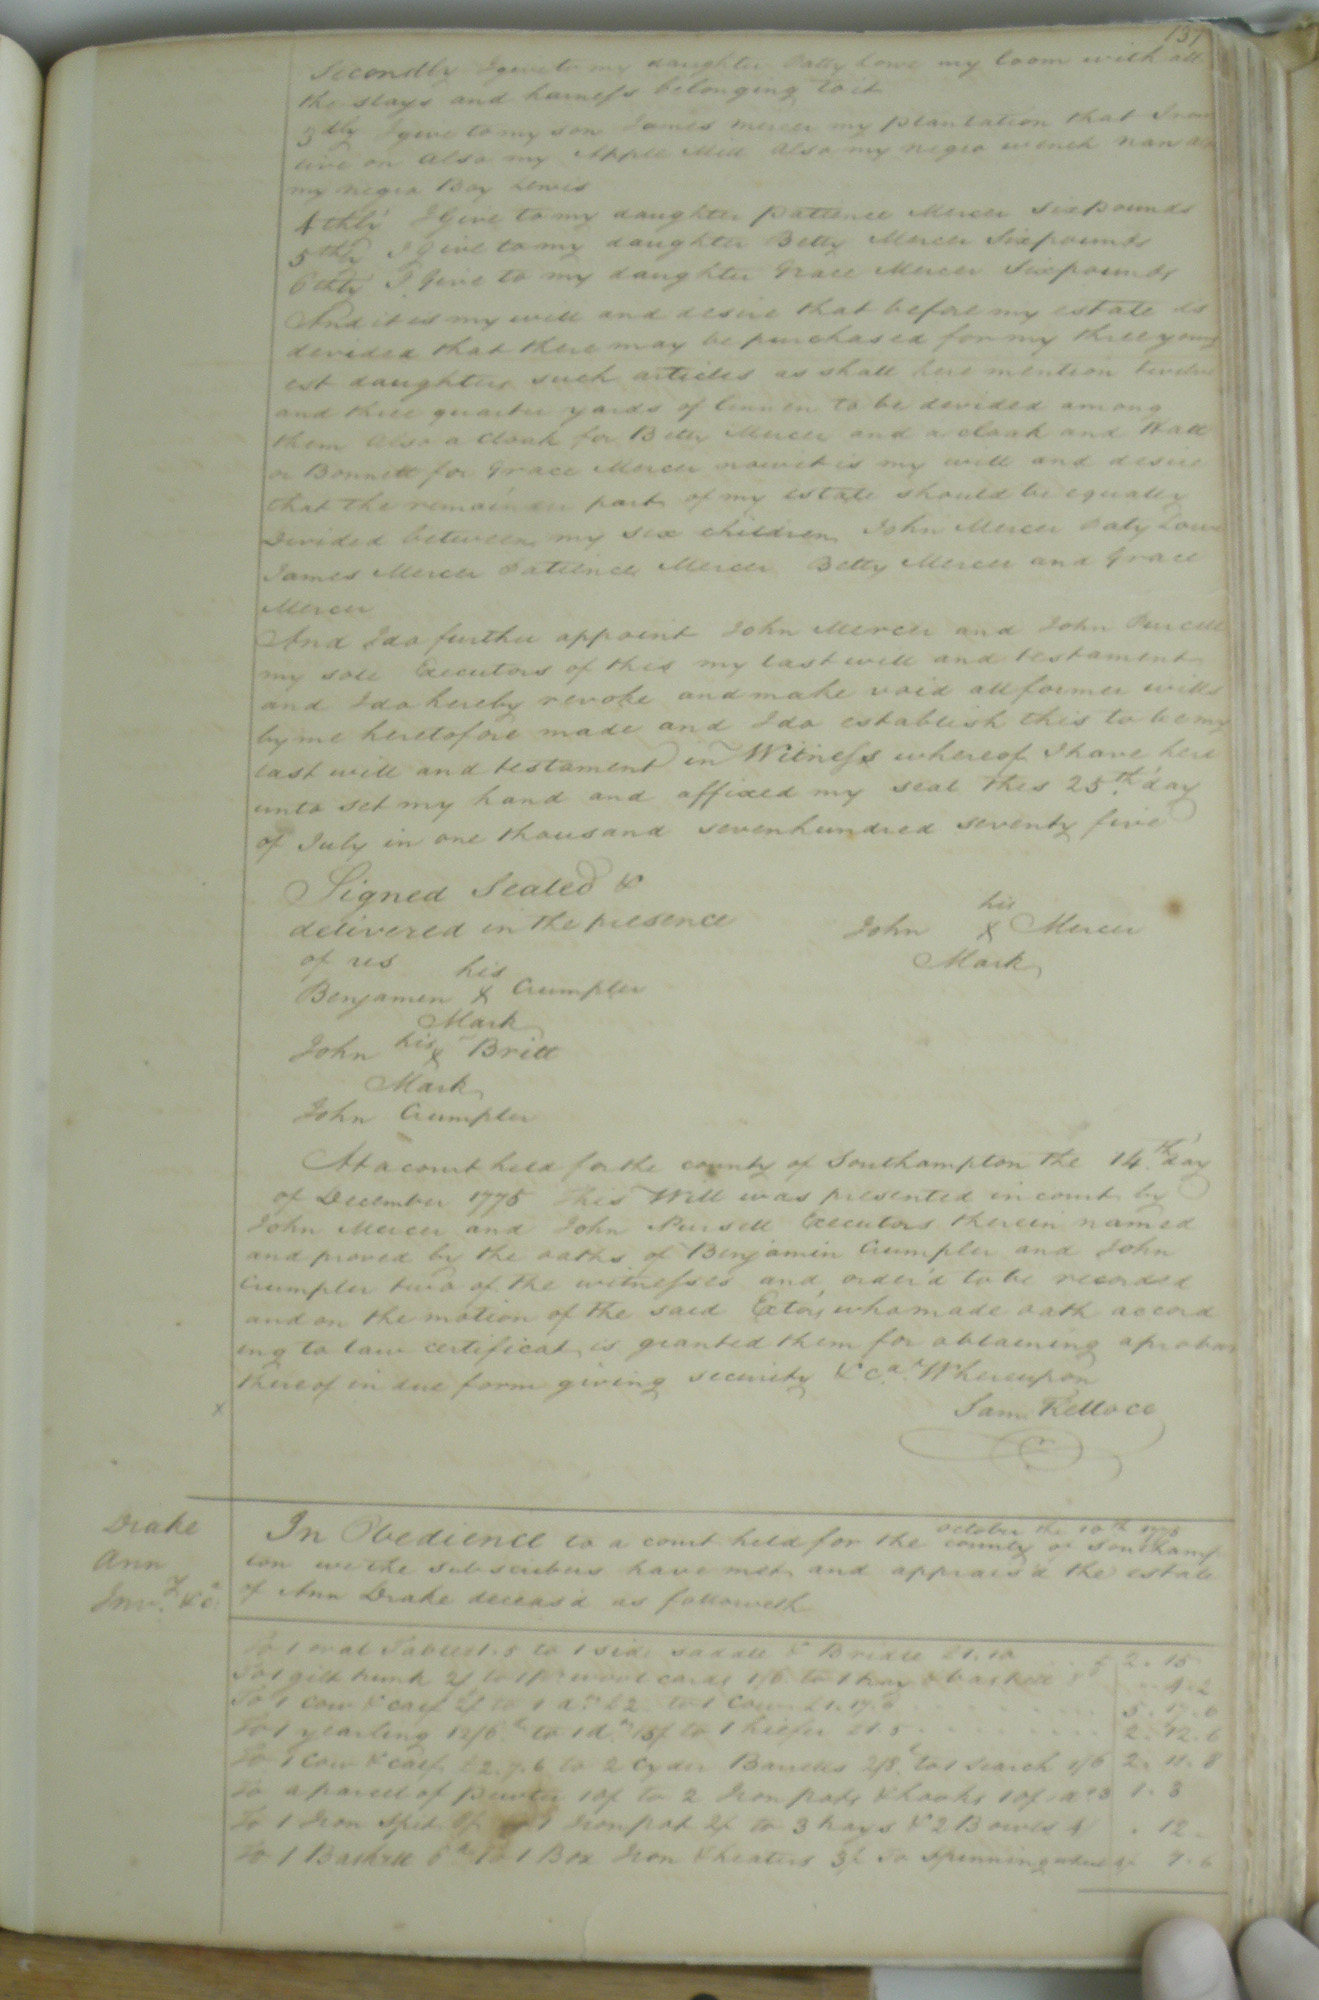 137
Secondly I give to my daughter Patty Lowe my loom with all
the slays and harness belonging to it
3dly I give to my son James Mercer my plantation that I now
live on also my Apple Mill also my negro wench Nan also
my negro Boy Lewis
4thly I Give to my daughter patience Mercer Six pounds
5thly I Give to my daughter Betty Mercer Six pounds
6thly I give to my daughter Grace Mercer Six pounds
And it is my will and desire that before my estate is
devided that there may be purchased for my three young
est daughters such articles as shall here mention twelve
and three quarter yards of linnen to be devided among
them Also a Cloak for Betty Mercer and a cloak and Hatt
or Bonnett for Grace Mercer now it is my will and desire
that the remainder part of my estate should be equally
Devided between my six children John Mercer Paty Lowe
James Mercer Patience Mercer Betty Mercer and Grace
Mercer
And I do further appoint John Mercer and John Purcell
my sole Executors of this my last will and testament
and I do hereby revoke and make void all former wills
by me heretofore made and I do establish this to be my
last will and testament in Witness whereof I have here
unto set my hand and affixed my seal this 25th day
of July in one thousand sevenhundred seventy five
Signed Sealed &
delivered in the presence
of us
his
John X Mercer
Mark
his
Benjamen X Crumpler
Mark
John his X Britt
Mark
John Crumpler
At a court held for the county of Southampton the 14th day
of December 1775 This Will was presented in court by
John Mercer and John Pursell Executors therein named
and proved by the oaths of Benjamin Crumpler and John
Crumpler two of the witnesses and order'd to be recorded
and on the motion of the said Extors who made oath accord
ing to law certificat is granted them for obtaining a probat
thereof in due form giving security &ca. Whereupon
x
Sam Kelloco
Drake
Ann
Invy &ca
In Obedience to a court held for the county of Southamp
october the 10th 1775
ton we the subscribers have met and apprais'd the estate
of Ann Drake deceas'd as followeth
To 1 oval Table 1.5 to 1 side saddle & Bridle £1.10 2.15
To 1 gilt trunk 2/ to 1 pr wool cards 1/6 to 1 tray & baskett 4.2
To 1 Cow & calf to 1 do £2 to 1 Cow £1.17.6 5.17.6
To 1 yearling 12/6 to 1 do 15/ to 1 heifer £1.5 2.12.6
To 1 Cow & calf £2.7.6 to 2 Cyder Barrells 2/8 to 1 Search 1/6 2.11.8
To a parcel of pewter 10/ to 2 Iron pots & hooks 10/ 1.3
To 1 Iron Spit to 1 Iron pot 2/ to 3 trays & 2 Bowls 12
To 1 Baskett 6d to 1 Box Iron & heaters 3/ To Spinning wheel 7.6